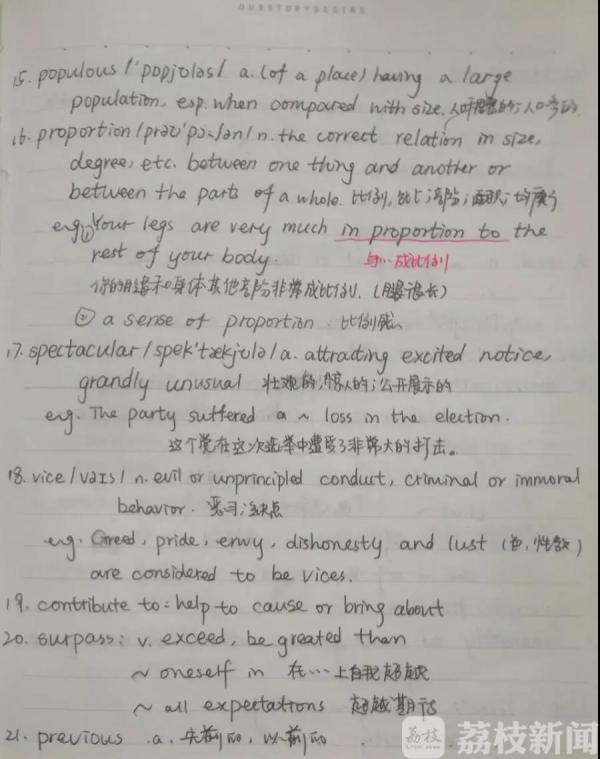 OURSTORYBEGINS
15. populous /'pɒpjʊləs/ a. (of a place) having a large
population, esp. when compared with size. 人口稠密的；人口多的
16. proportion /prəʊ'pɔ:ʃən/ n. the correct relation in size,
degree, etc. between one thing and another or
between the parts of a whole. 比例，部分；面积；均衡
eg. ① Your legs are very much in proportion to the
rest of your body. 与…成比例
你的腿和身体其他部阶非常成比例. (腿很长)
② a sense of proportion : 比例感
17. spectacular /spek'tækjʊlə/ a. attracting excited notice,
grandly unusual 壮观的，惊人的；公开展示的
eg. The party suffered a ~ loss in the election.
这个党在这次选举中遭受了非常大的打击。
18. vice /vaɪs/ n. evil or unprincipled conduct, criminal or immoral
behavior. 恶习；缺点
eg. Greed, pride, envy, dishonesty and lust (色，性欲)
are considered to be vices.
19. contribute to: help to cause or bring about
20. surpass: v. exceed, be greated than
~ oneself in 在…上自我超越
~ all expectations 超越期望
21. previous .a. 先前的，以前的
荔枝
荔枝新闻